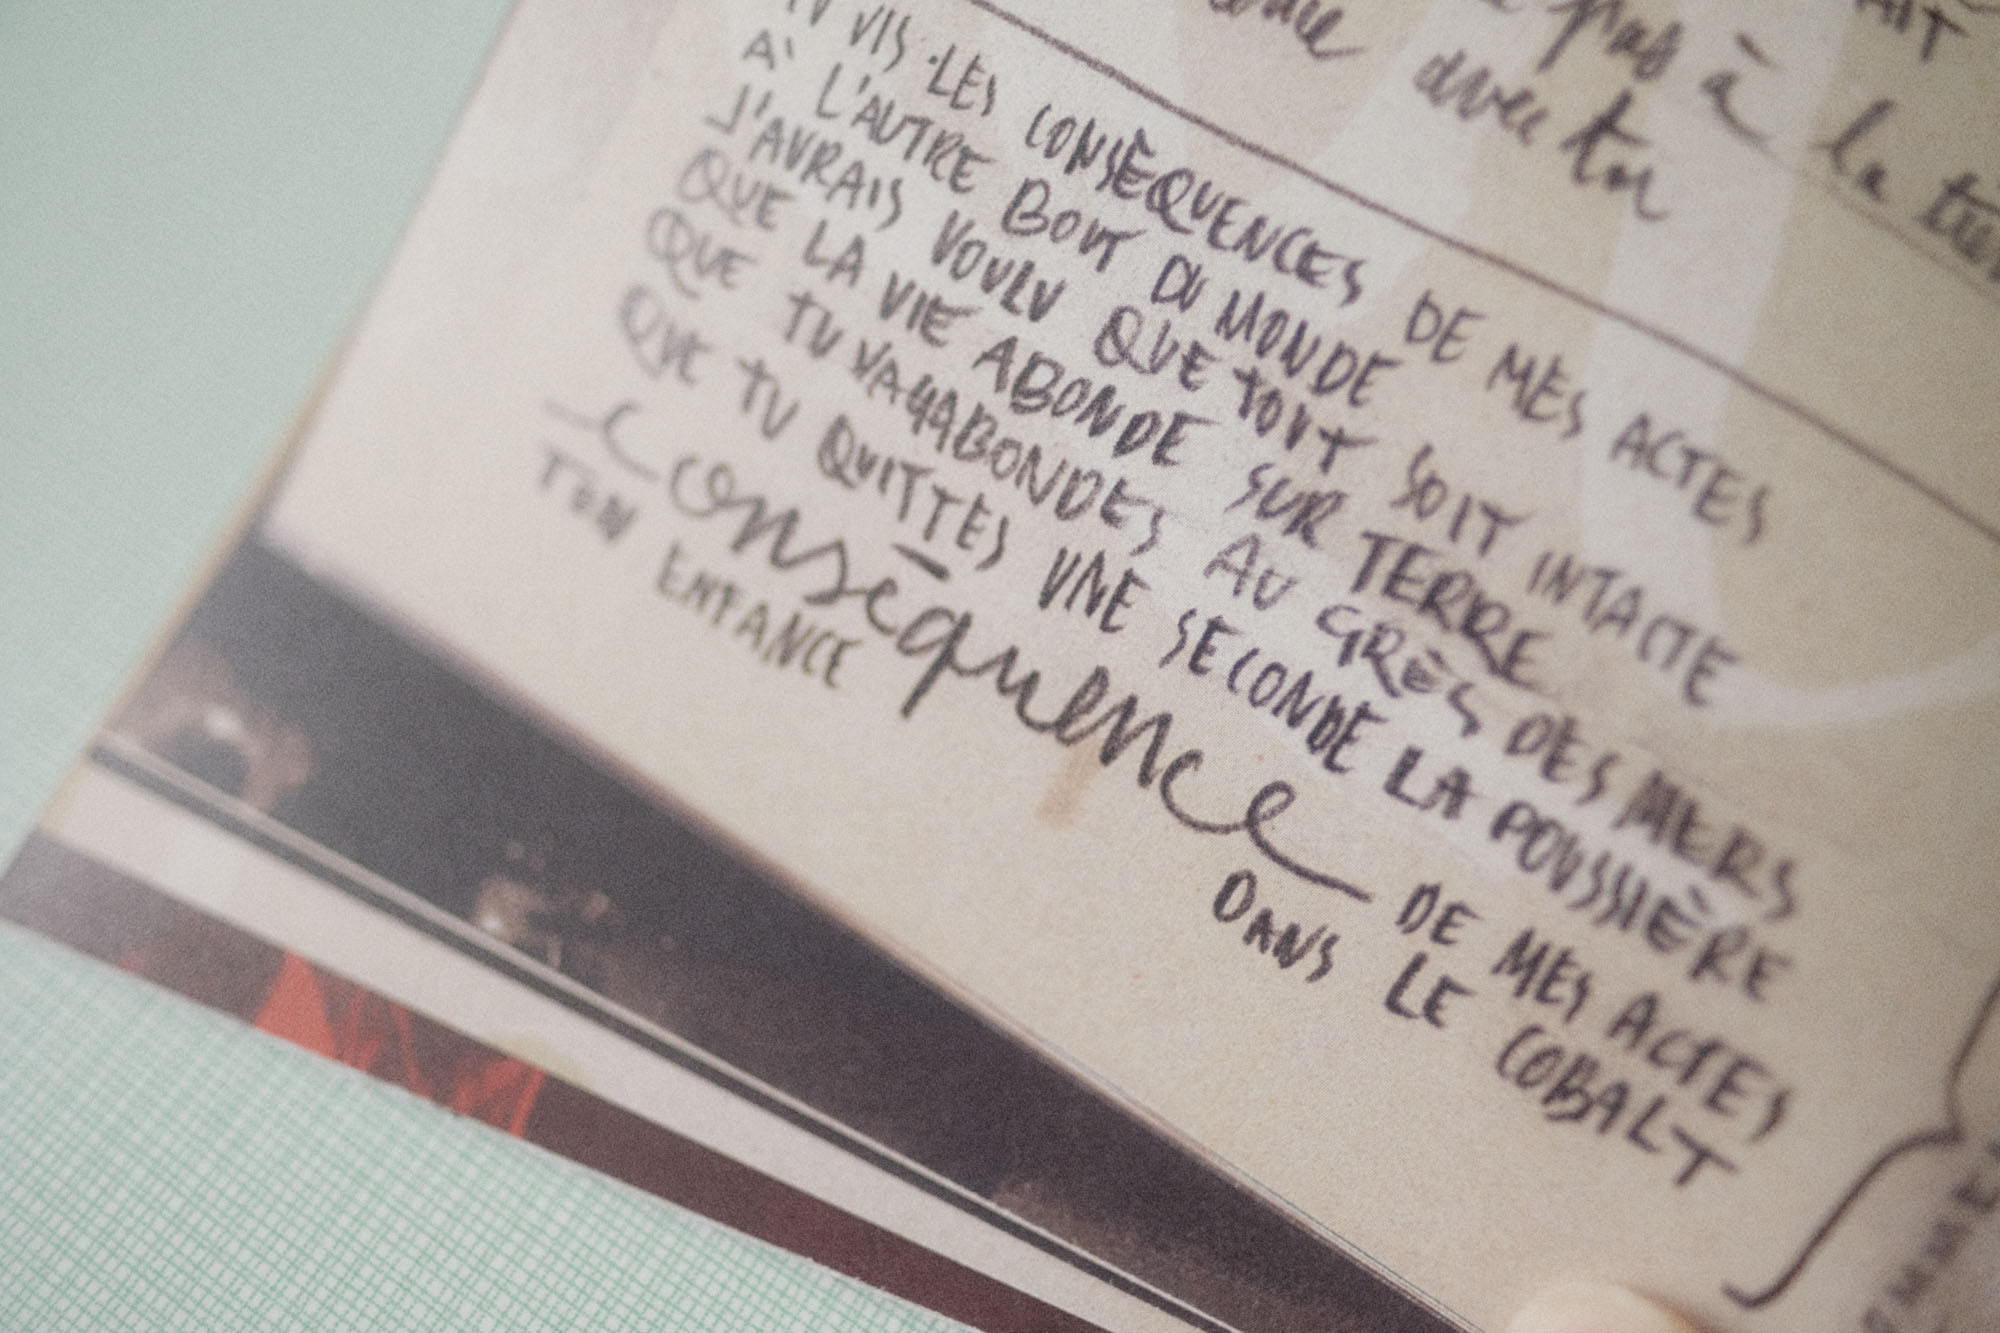 pas à la
avec toi
TU VIS LES CONSÈQUENCES DE MES ACTES
À L'AUTRE BOUT DU MONDE
J'AURAIS VOULU QUE TOUT SOIT INTACTE
QUE LA VIE ABONDE SUR TERRE
QUE TU VAGABONDES AU GRÈS DES MERS
QUE TU QUITTES UNE SECONDE LA POUSSIÈRE
conséquence DE MES ACTES
TON ENFANCE DANS LE COBALT